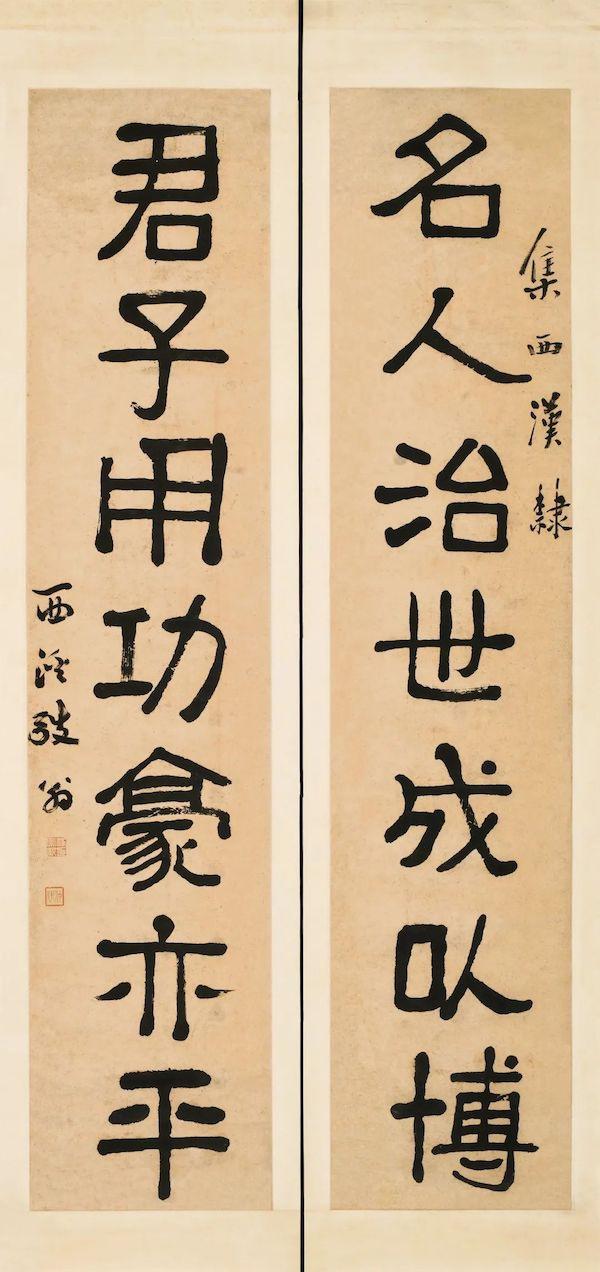 集西漢隸
名人治世成以博
君子用功豪亦平
西溪翁